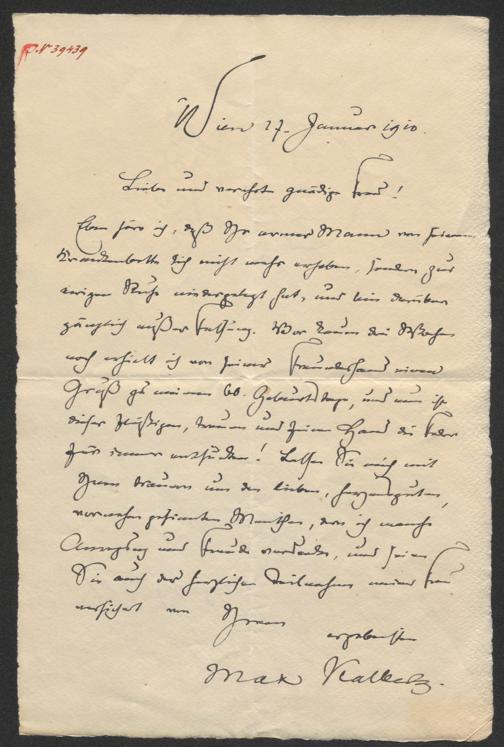 P. N 39439
Wien 27. Januar 1910.
Liebe und verehrte gnädige Frau!
Eben höre ich, daß Ihr armer Mann von seinem
Krankenbette sich nicht mehr erhoben, sondern zur
ewigen Ruhe niedergelegt hat, und bin darüber
gänzlich außer Fassung. Vor kaum drei Wochen
noch erhielt ich von seiner Freundeshand einen
Gruß zu meinem 60. Geburtstage, und nun ist
dieser fleißigen, treuen und feinen Hand die Feder
für immer entsunken! Lassen Sie mich mit
Ihnen trauern um den lieben, herzensguten,
vornehm gesinnten Menschen, dem ich manche
Anregung und Freude verdanke, und seien
Sie auch der herzlichen Teilnahme meiner Frau
versichert von Ihrem
ergebensten
Max Kalbeck.